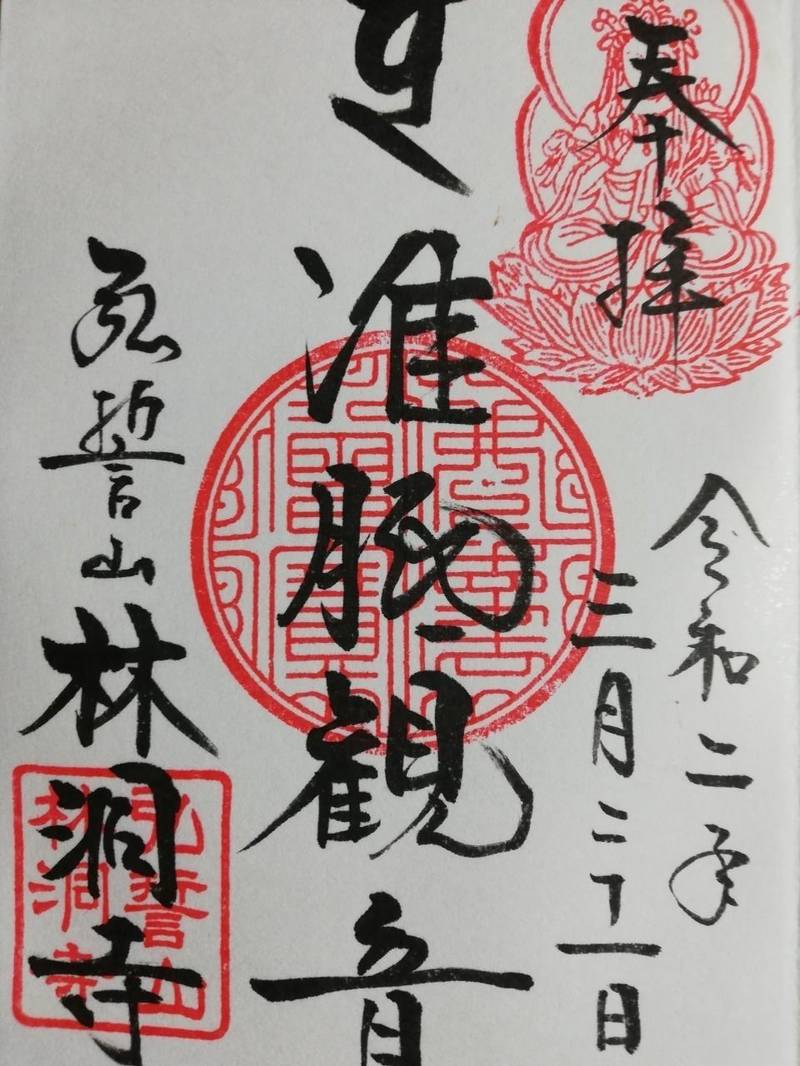 奉拝
令和二年
三月二十一日
准胝観音
弘誓山林洞寺
弘誓山
林洞寺